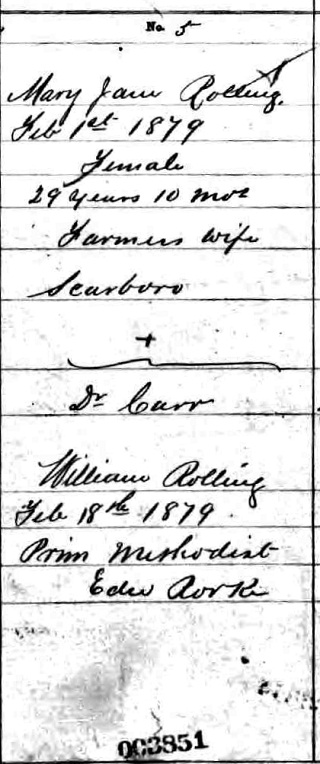 No 5
Mary Jane Rolling.
Feb 1st 1879
Female
29 Years 10 mos
Farmers wife
Scarboro
+
Dr Carr
William Rolling
Feb 18th 1879.
Prim Methodist
Edw Rorke
003851